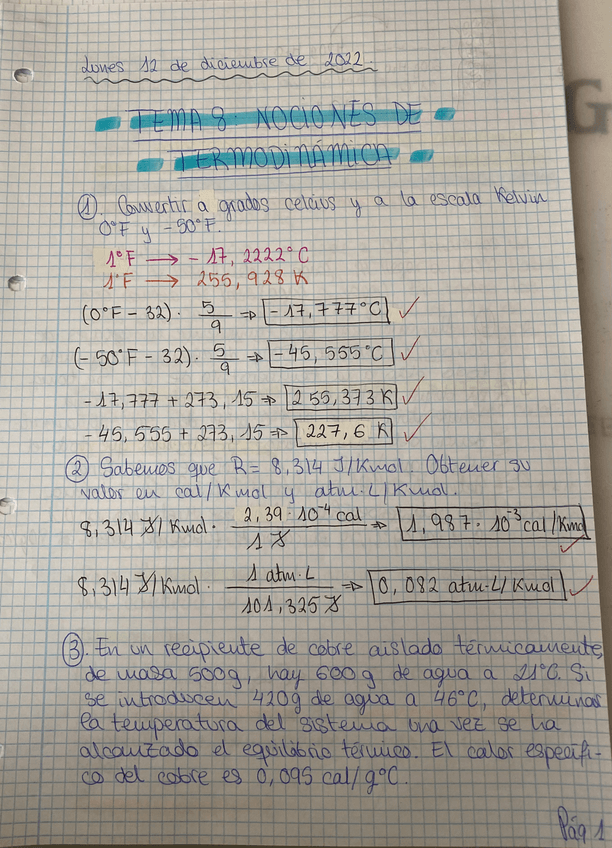 Lunes 12 de diciembre de 2022.
TEMA 8: NOCIONES DE
TERMODINÁMICA
① Convertir a grados celcius y a la escala Kelvin
0°F y -50°F.
1°F → -17,2222°C
1°F → 255,928 K
(0°F - 32) · 5/9 ⇒ -17,777°C ✓
(-50°F - 32) · 5/9 ⇒ -45,555°C ✓
-17,777 + 273,15 ⇒ 255,373 K ✓
-45,555 + 273,15 ⇒ 227,6 K ✓
② Sabemos que R = 8,314 J/Kmol. Obtener su
valor en cal/Kmol y atm·L/Kmol.
8,314 J/Kmol · 2,39·10⁻⁴ cal / 1 J ⇒ 1,987·10⁻³ cal/Kmol ✓
8,314 J/Kmol · 1 atm·L / 101,325 J ⇒ 0,082 atm·L/Kmol ✓
③. En un recipiente de cobre aislado térmicamente,
de masa 500g, hay 600g de agua a 21°C. Si
se introducen 420g de agua a 46°C, determinar
la temperatura del sistema una vez se ha
alcanzado el equilibrio térmico. El calor específi-
co del cobre es 0,095 cal/g°C.
Pág 1
G